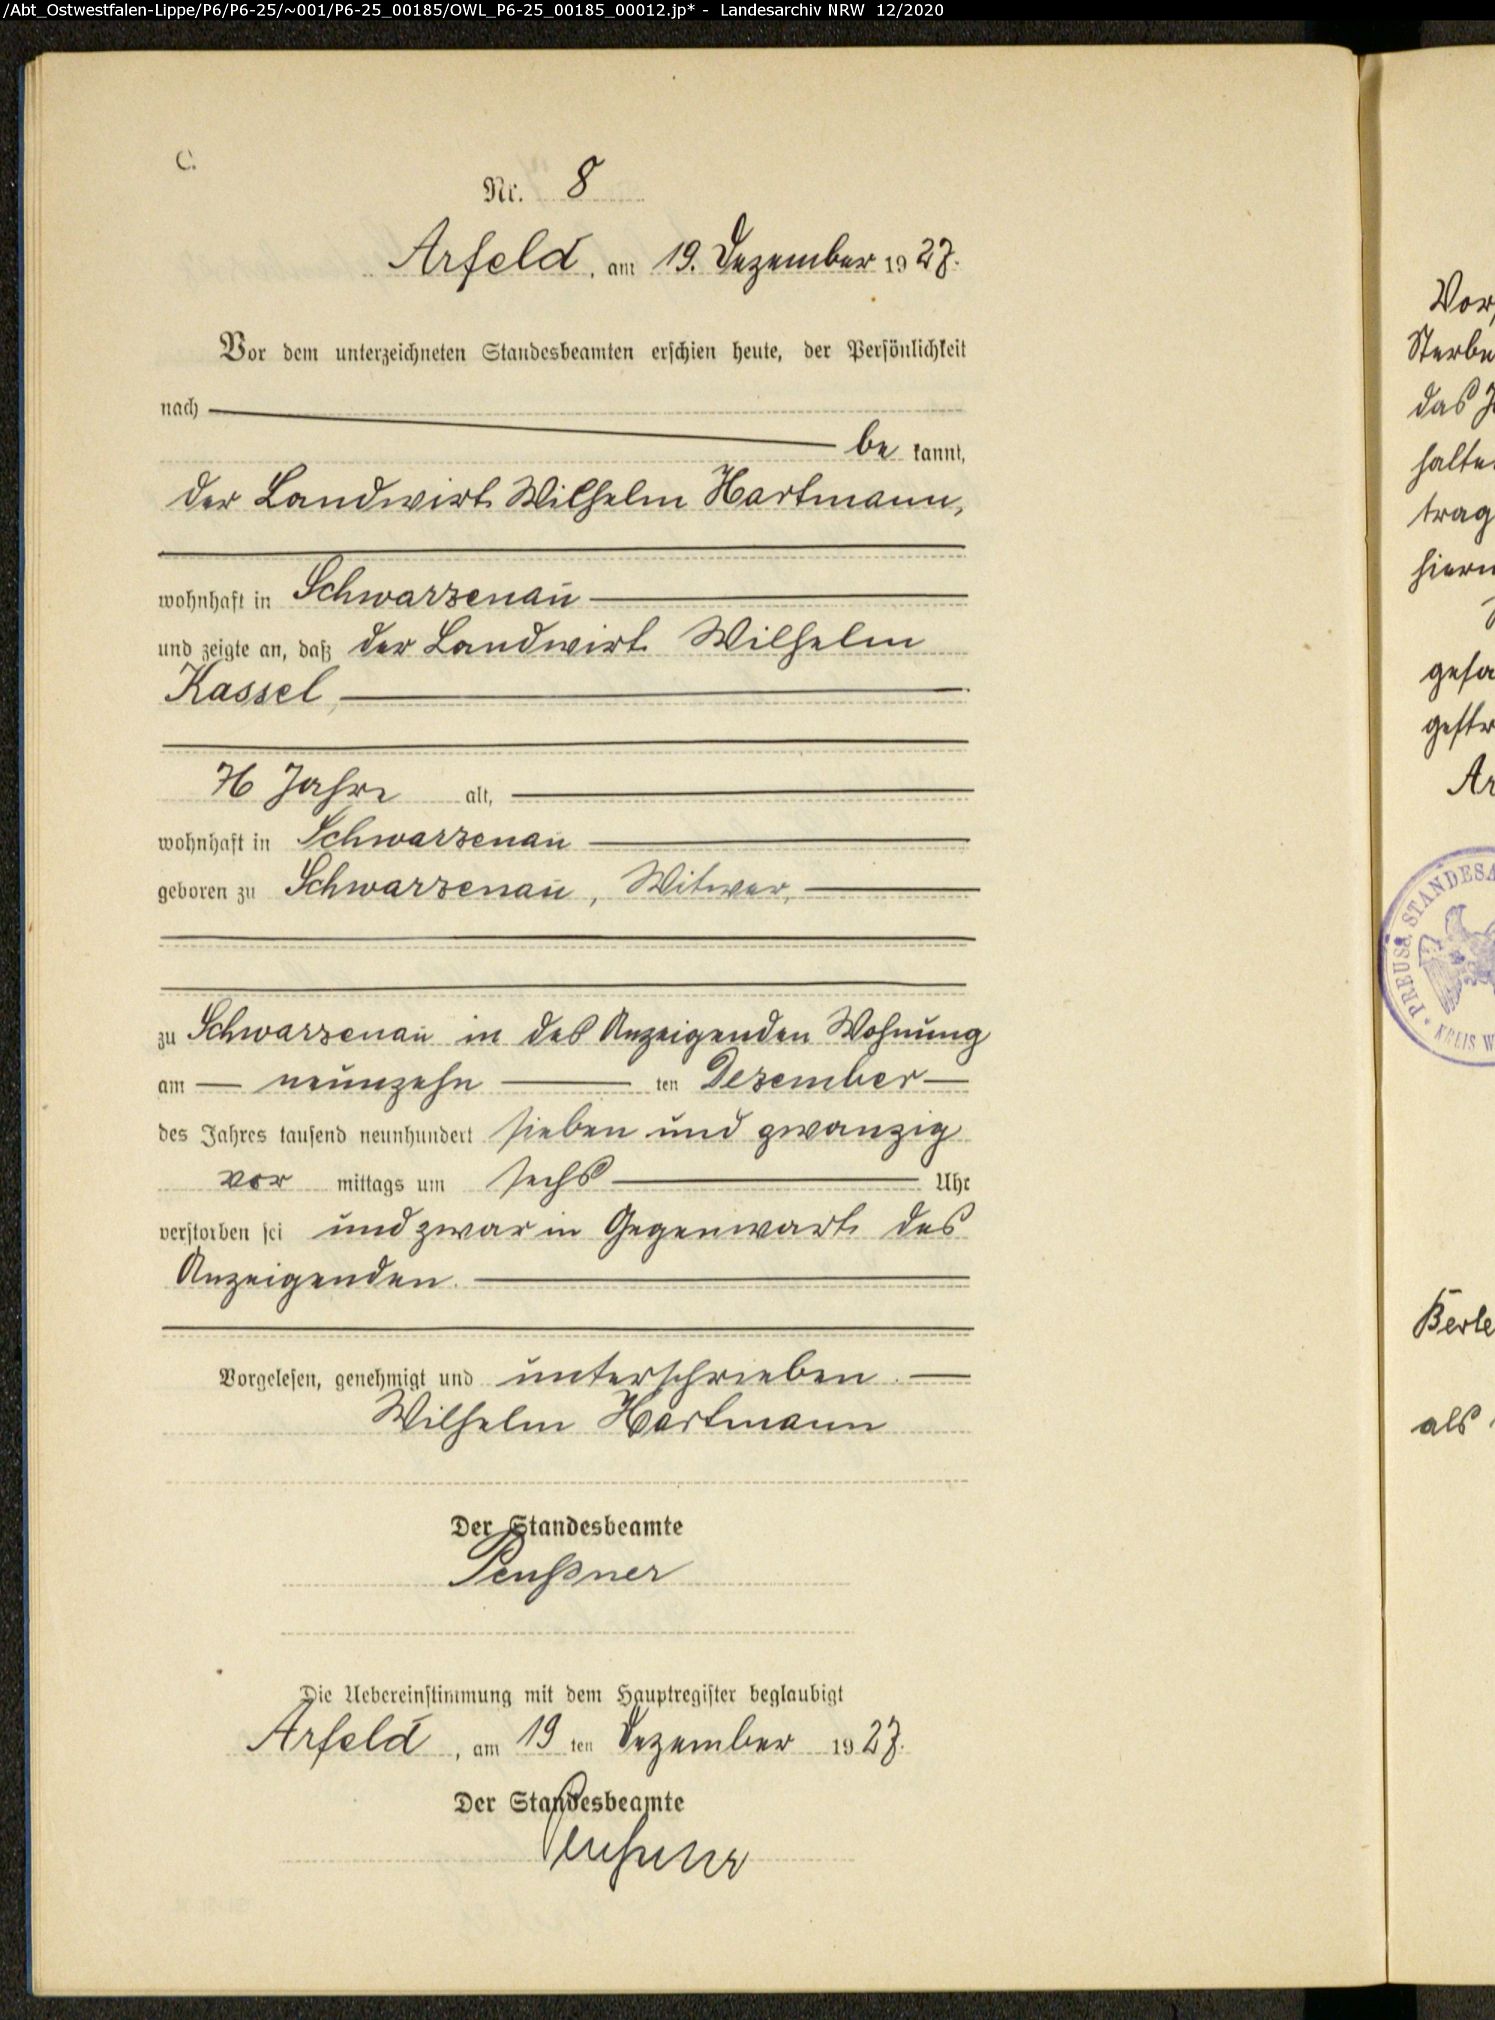 /Abt_Ostwestfalen-Lippe/P6/P6-25/~001/P6-25_00185/OWL_P6-25_00185_00012.jp* - Landesarchiv NRW 12/2020
C.
Nr. 8
Arfeld, am 19. Dezember 1927.
Vor dem unterzeichneten Standesbeamten erschien heute, der Persönlichkeit
nach
be kannt,
der Landwirt Wilhelm Hartmann,
wohnhaft in Schwarzenau
und zeigte an, daß der Landwirt Wilhelm
Kassel,
76 Jahre alt,
wohnhaft in Schwarzenau
geboren zu Schwarzenau, Witwer,
zu Schwarzenau in des Anzeigenden Wohnung
am neunzehn ten Dezember
des Jahres tausend neunhundert sieben und zwanzig
vor mittags um sechs Uhr
verstorben sei und zwar in Gegenwart des
Anzeigenden.
Vorgelesen, genehmigt und unterschrieben.
Wilhelm Hartmann
Der Standesbeamte
Peußner
Die Uebereinstimmung mit dem Hauptregister beglaubigt
Arfeld, am 19 ten Dezember 1927.
Der Standesbeamte
Peußner
Vor
Sterbe
das J
halte
trag
hierm
gesa
gestr
Ar
PREUSS. STANDESA
KREIS W
Berle
als